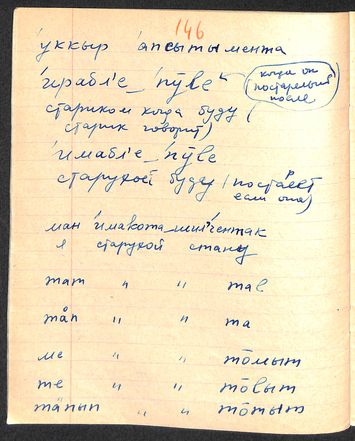 146
'уккыр 'апсытымента
'ирабл'е_'пӯве
когда он
постарелый
после
стариком когда буду (
старик говорит)
'имабл'е_'пӯве
старухой буду (постареет
если она)
ман 'имакота_ "ентак
я старухой стану
тат " " тав
тӓп " " та
ме " " тōмыт
те " " тōвыт
тӓпып " " тōтыт